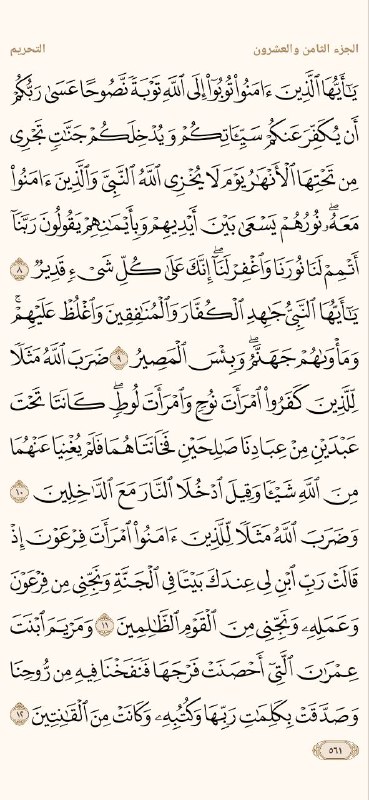 الجزء الثامن والعشرون
التحريم
يَٰٓأَيُّهَا ٱلَّذِينَ ءَامَنُوا۟ تُوبُوٓا۟ إِلَى ٱللَّهِ تَوْبَةً نَّصُوحًا عَسَىٰ رَبُّكُمْ
أَن يُكَفِّرَ عَنكُمْ سَيِّـَٔاتِكُمْ وَيُدْخِلَكُمْ جَنَّٰتٍ تَجْرِى
مِن تَحْتِهَا ٱلْأَنْهَٰرُ يَوْمَ لَا يُخْزِى ٱللَّهُ ٱلنَّبِىَّ وَٱلَّذِينَ ءَامَنُوا۟
مَعَهُۥۖ نُورُهُمْ يَسْعَىٰ بَيْنَ أَيْدِيهِمْ وَبِأَيْمَٰنِهِمْ يَقُولُونَ رَبَّنَآ
أَتْمِمْ لَنَا نُورَنَا وَٱغْفِرْ لَنَآۖ إِنَّكَ عَلَىٰ كُلِّ شَىْءٍ قَدِيرٌ ٨
يَٰٓأَيُّهَا ٱلنَّبِىُّ جَٰهِدِ ٱلْكُفَّارَ وَٱلْمُنَٰفِقِينَ وَٱغْلُظْ عَلَيْهِمْۚ
وَمَأْوَىٰهُمْ جَهَنَّمُۖ وَبِئْسَ ٱلْمَصِيرُ ٩ ضَرَبَ ٱللَّهُ مَثَلًا
لِّلَّذِينَ كَفَرُوا۟ ٱمْرَأَتَ نُوحٍ وَٱمْرَأَتَ لُوطٍۖ كَانَتَا تَحْتَ
عَبْدَيْنِ مِنْ عِبَادِنَا صَٰلِحَيْنِ فَخَانَتَاهُمَا فَلَمْ يُغْنِيَا عَنْهُمَا
مِنَ ٱللَّهِ شَيْـًٔا وَقِيلَ ٱدْخُلَا ٱلنَّارَ مَعَ ٱلدَّٰخِلِينَ ١٠
وَضَرَبَ ٱللَّهُ مَثَلًا لِّلَّذِينَ ءَامَنُوا۟ ٱمْرَأَتَ فِرْعَوْنَ إِذْ
قَالَتْ رَبِّ ٱبْنِ لِى عِندَكَ بَيْتًا فِى ٱلْجَنَّةِ وَنَجِّنِى مِن فِرْعَوْنَ
وَعَمَلِهِۦ وَنَجِّنِى مِنَ ٱلْقَوْمِ ٱلظَّٰلِمِينَ ١١ وَمَرْيَمَ ٱبْنَتَ
عِمْرَٰنَ ٱلَّتِىٓ أَحْصَنَتْ فَرْجَهَا فَنَفَخْنَا فِيهِ مِن رُّوحِنَا
وَصَدَّقَتْ بِكَلِمَٰتِ رَبِّهَا وَكُتُبِهِۦ وَكَانَتْ مِنَ ٱلْقَٰنِتِينَ ١٢
٥٦١